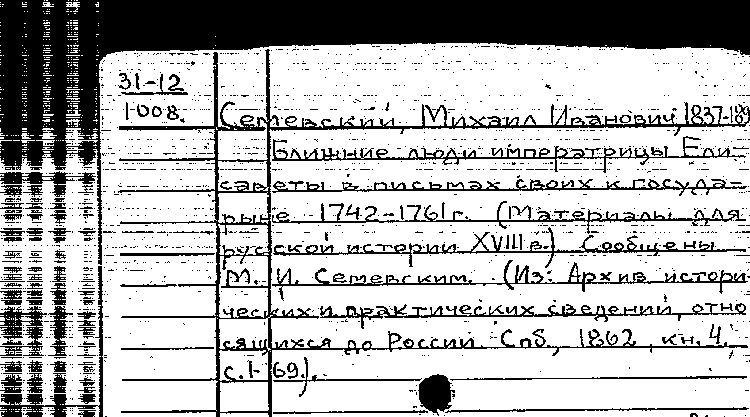 31-12
1008.
Семевский, Михаил Иванович, 1837-189
Ближние люди императрицы Ели-
саветы в письмах своих к госуда-
рыне 1742-1761г. (Материалы для
русской истории XVIII в.) Сообщены
М. И. Семевским. (Из: Архив истори
ческих и практических сведений, отно
сящихся до России. Спб., 1862, кн. 4,
с. 1-69.).